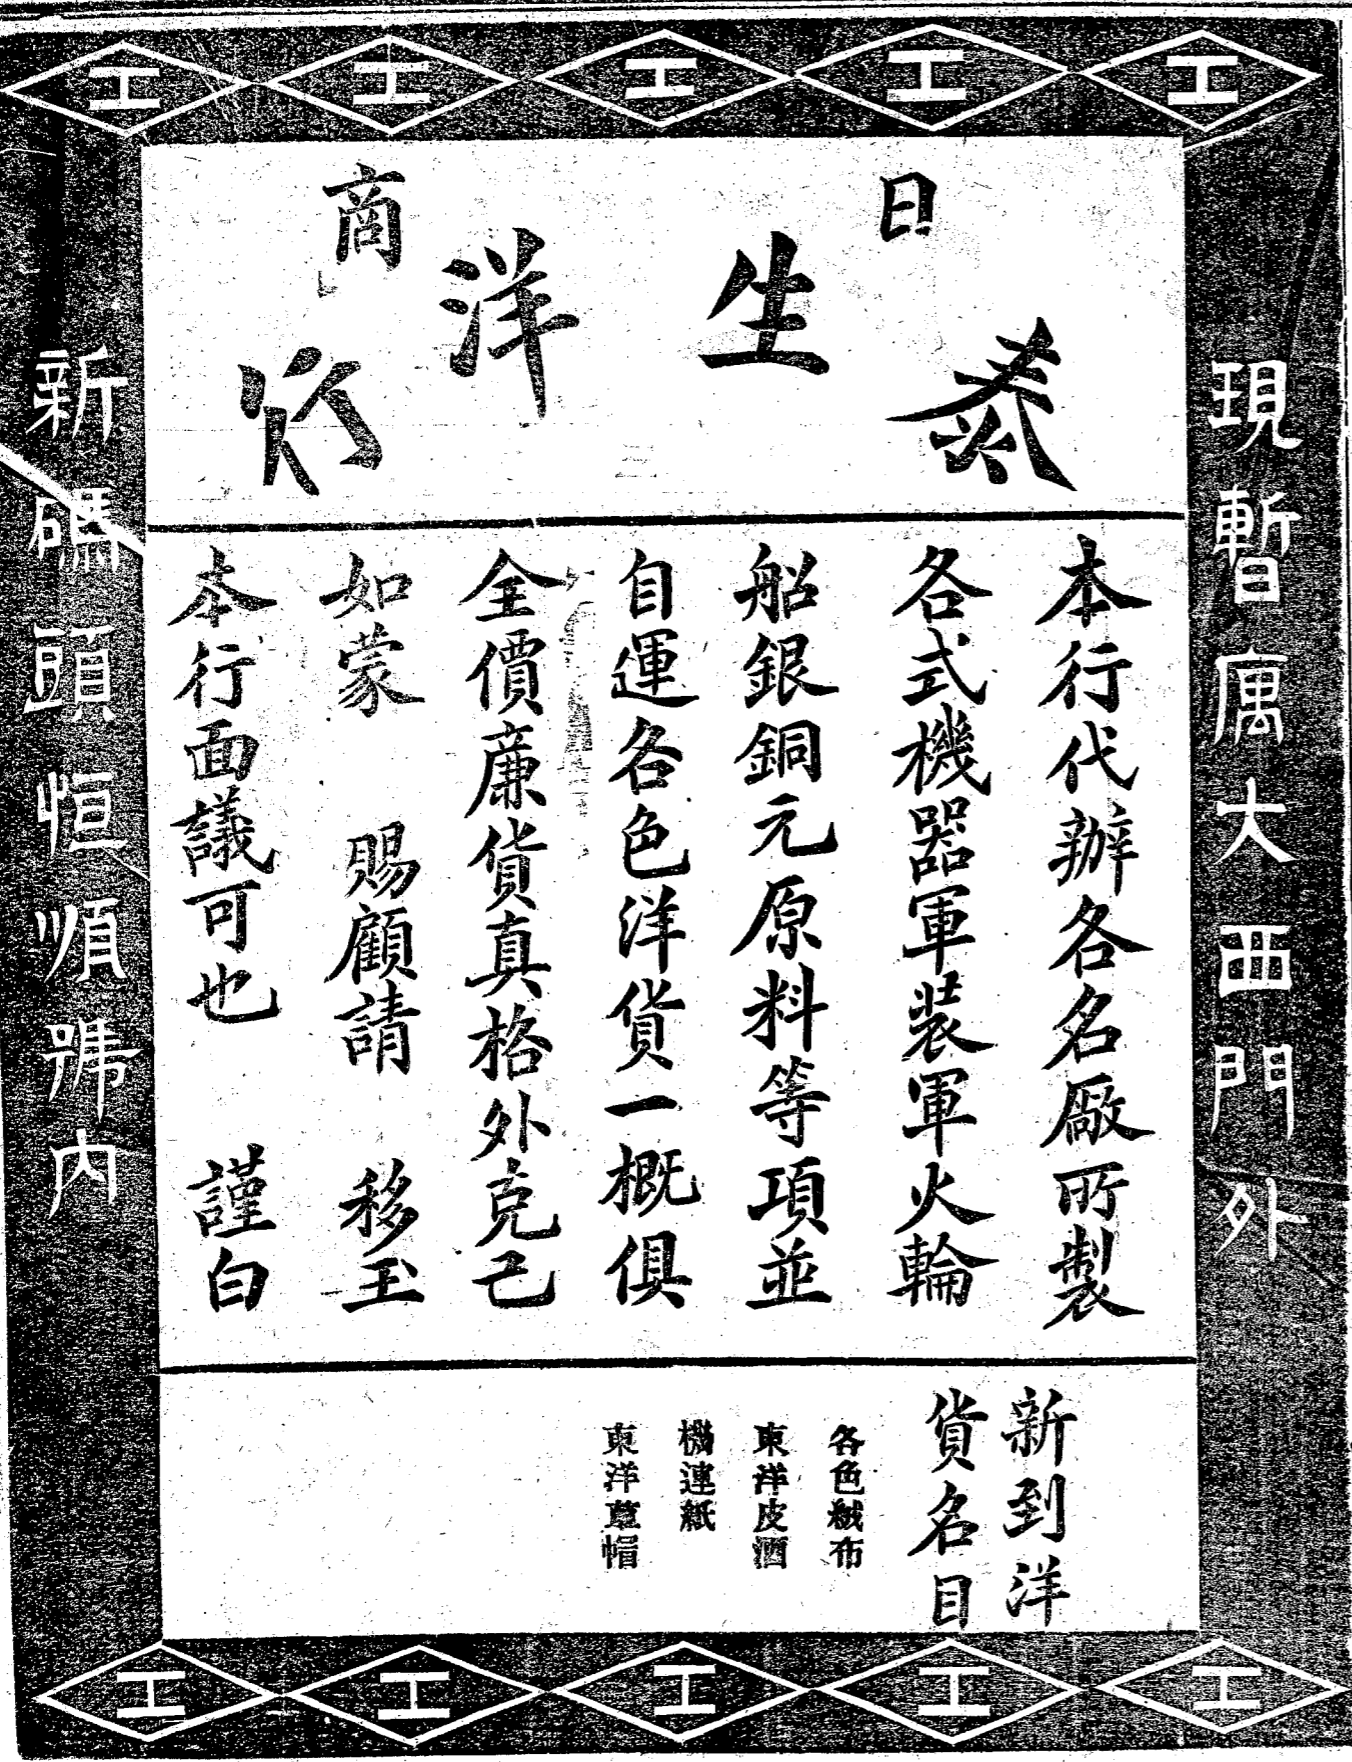 工 工 工 工 工
日商
泰生洋行
現暫寓大西門外
本行代辦各名廠所製
各式機器軍裝軍火輪
船銀銅元原料等項並
自運各色洋貨一概俱
全價廉貨真格外克己
如蒙 賜顧請 移玉
本行面議可也 謹白
新到洋
貨名目
各色絨布
東洋皮酒
機連紙
東洋草帽
新碼頭恒順號內
工 工 工 工 工